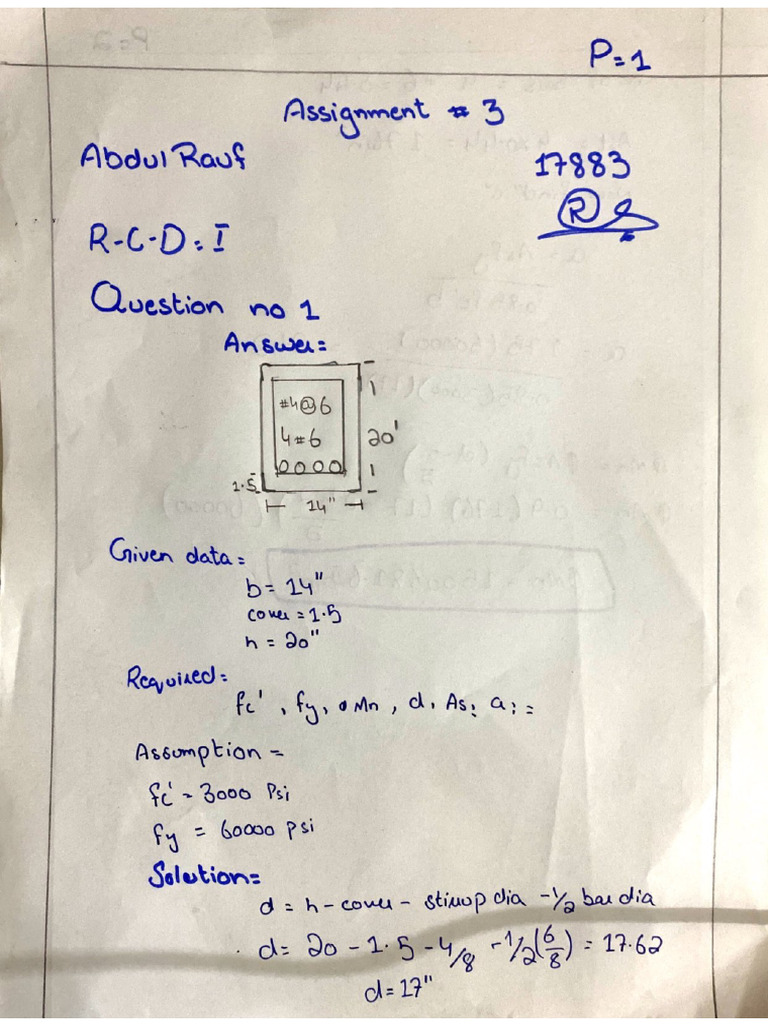 P=1
Assignment # 3
Abdul Rauf 17883
R
R-C-D=I
Question no 1
Answer=
#4@6
4#6
20'
1.5
14"
Given data=
b= 14"
cover = 1.5
h = 20"
Required=
fc', fy, øMn, d, As, a;=
Assumption =
fc' = 3000 Psi
fy = 60000 psi
Solution=
d = h-cover- stirrup dia -1/2 bar dia
d= 20 - 1.5 - 4/8 -1/2(6/8) = 17.62
d=17"